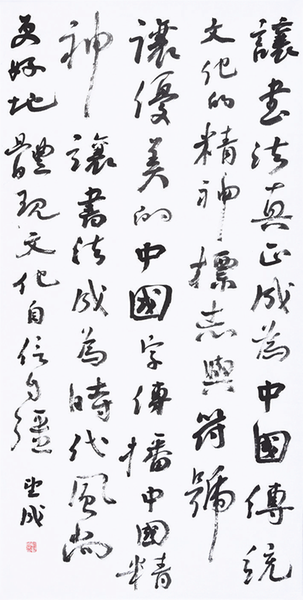 讓書法真正成為中國傳統
文化的精神標志與符號
讓優美的中國字傳播中國精
神讓書法成為時代風尚
更好地體現文化自信自彊